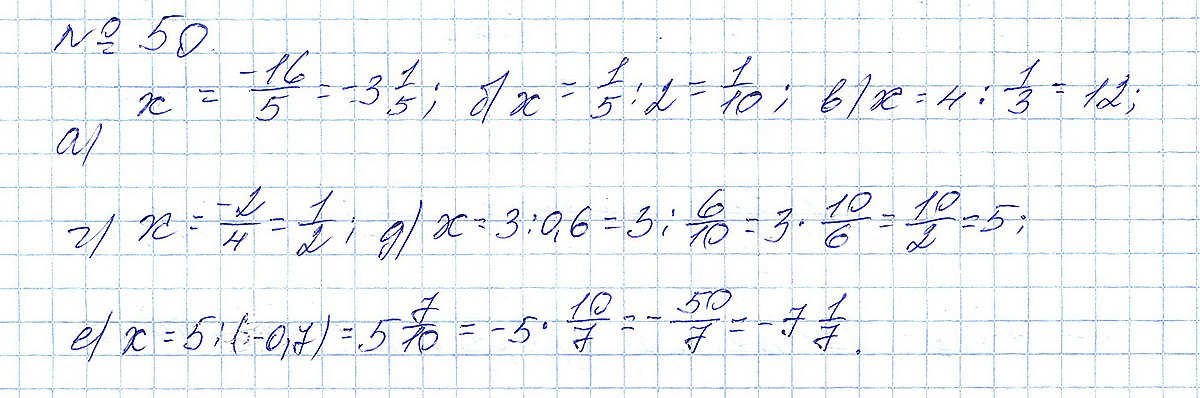 № 50.
а) x = -16/5 = -3 1/5; б) x = 1/5 : 2 = 1/10; в) x = 4 : 1/3 = 12;
г) x = -2/4 = 1/2; д) x = 3 : 0,6 = 3 : 6/10 = 3 · 10/6 = 10/2 = 5;
е) x = 5 : (-0,7) = 5 7/10 = -5 · 10/7 = - 50/7 = -7 1/7.